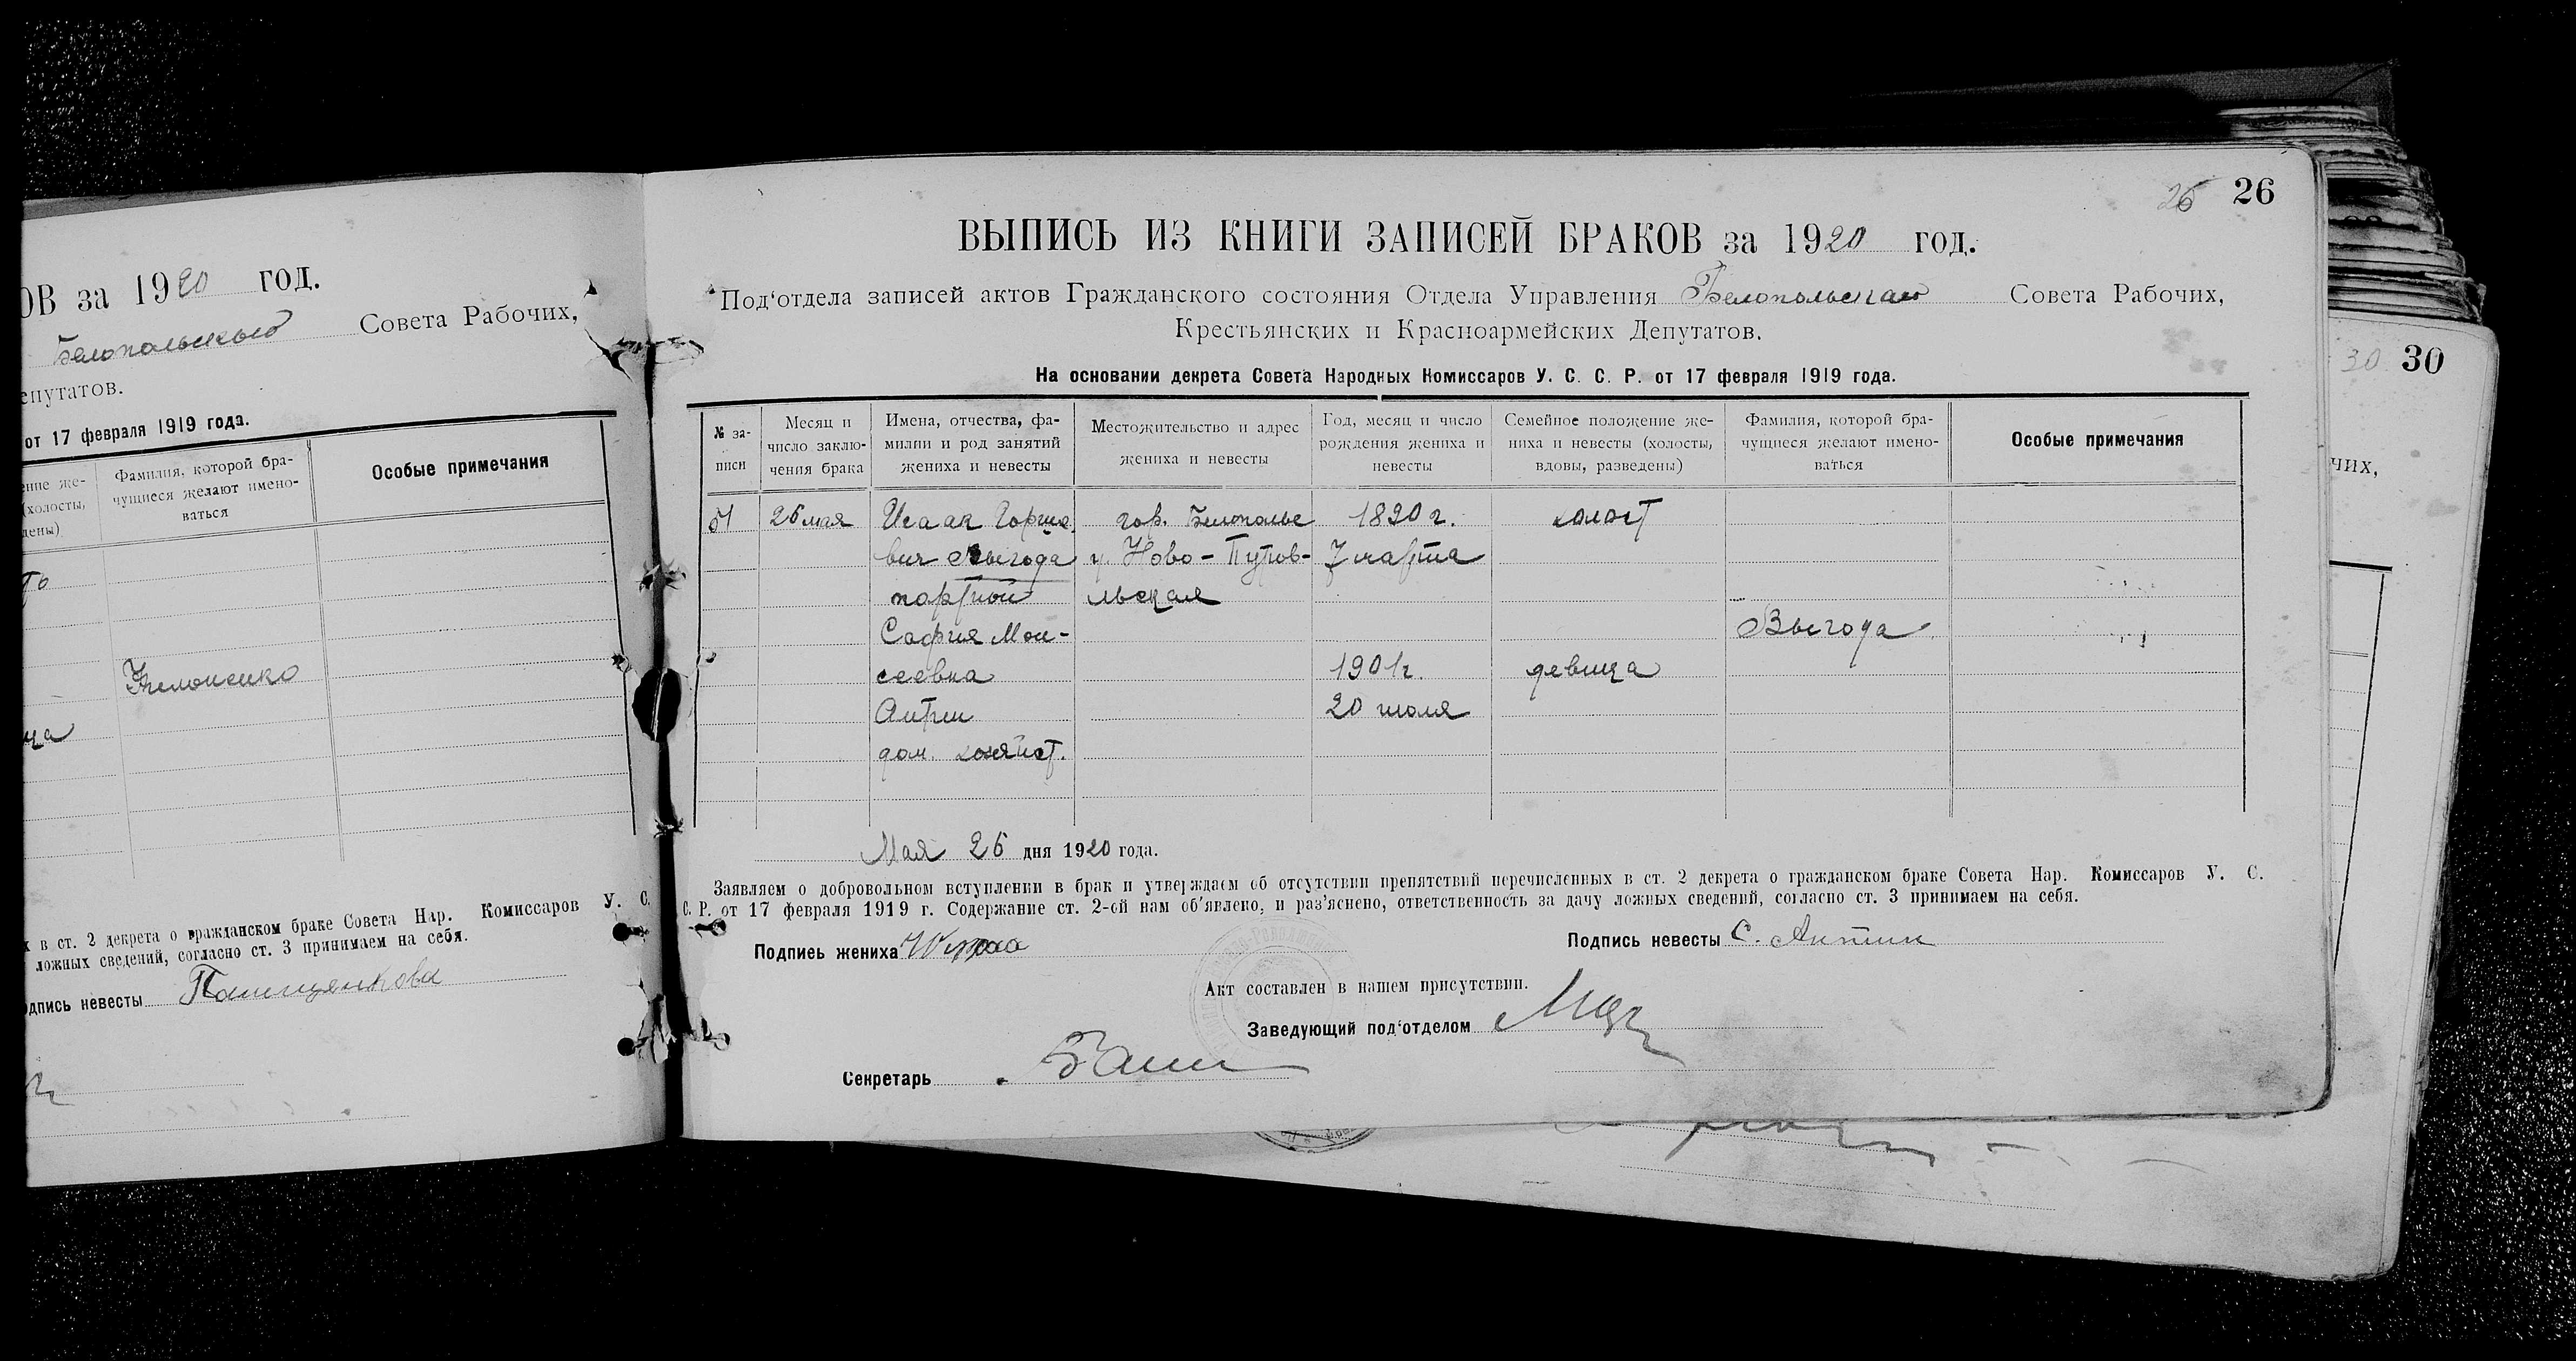 ОВ за 1920 год.
Белопольского Совета Рабочих,
епутатов.
от 17 февраля 1919 года.
ение же-
(холосты,
дены)
Фамилия, которой бра-
чущиеся желают имено-
ваться
Особые примечания
ца
х в ст. 2 декрета о гражданском браке Совета Нар. Комиссаров У. С.
ложных сведений, согласно ст. 3 принимаем на себя.
одпись невесты
26 26
ВЫПИСЬ ИЗ КНИГИ ЗАПИСЕЙ БРАКОВ за 1920 год.
Под'отдела записей актов Гражданского состояния Отдела Управления Белопольского Совета Рабочих,
Крестьянских и Красноармейских Депутатов.
На основании декрета Совета Народных Комиссаров У. С. С. Р. от 17 февраля 1919 года.
№ за-
писи
Месяц и
число заклю-
чения брака
Имена, отчества, фа-
милии и род занятий
жениха и невесты
Местожительство и адрес
жениха и невесты
Год, месяц и число
рождения жениха и
невесты
Семейное положение же-
ниха и невесты (холосты,
вдовы, разведены)
Фамилия, которой бра-
чущиеся желают имено-
ваться
Особые примечания
26 мая Исаак гор. Белополье 1890 г. холост
вич Выгода Ново- 7 марта
портной
София Мои- Выгода
сеевна 1901 г. девица
20 июля
дом. хозяйст.
Мая 26 дня 1920 года.
Заявляем о добровольном вступлении в брак и утверждаем об отсутствии препятствий перечисленных в ст. 2 декрета о гражданском браке Совета Нар. Комиссаров У. С.
С. Р. от 17 февраля 1919 г. Содержание ст. 2-ой нам об'явлено, и раз'яснено, ответственность за дачу ложных сведений, согласно ст. 3 принимаем на себя.
Подпись жениха
Подпись невесты С.
Акт составлен в нашем присутствии.
Заведующий под'отделом
Секретарь
30 30
чих,